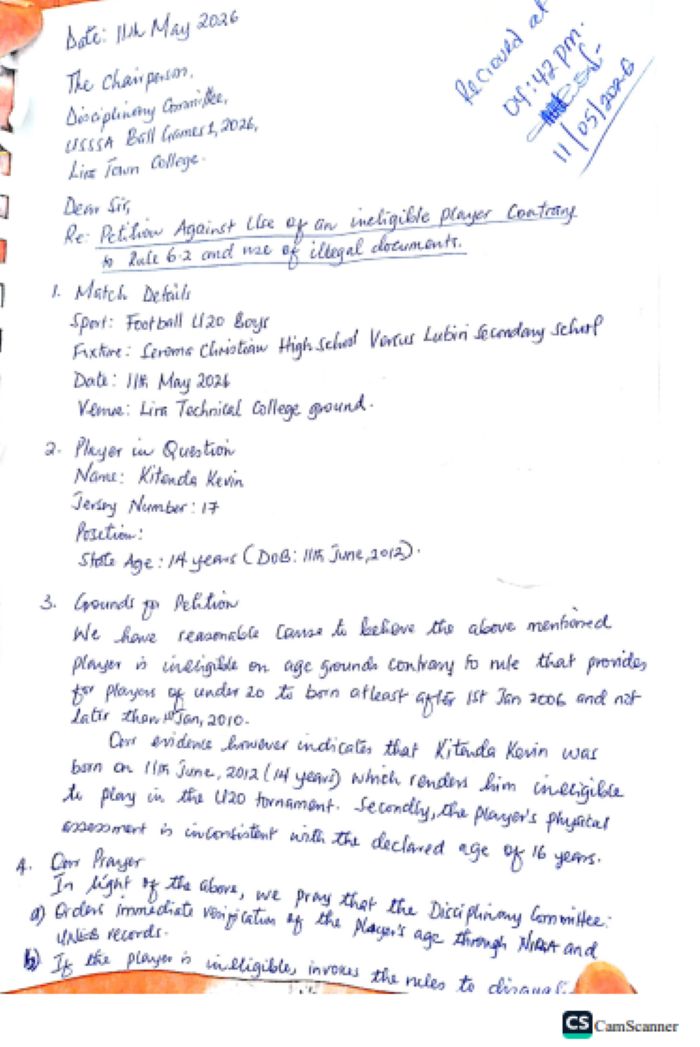 Date: 11th May 2026
Recieved at
04:42 pm.
11/05/2026
The Chairperson,
Disciplinary Committee,
USSSA Ball Games 1, 2026,
Lira Town College.
Dear Sir,
Re: Petition Against Use of an ineligible player Contrary
to Rule 6.2 and use of illegal documents.
1. Match Details
Sport: Football U20 Boys
Fixture: Seroma Christian High School Versus Lubiri Secondary School
Date: 11th May 2026
Venue: Lira Technical College ground.
2. Player in Question
Name: Kitenda Kevin
Jersey Number: 17
Position:
State Age: 14 years (DOB: 11th June, 2012).
3. Grounds for Petition
We have reasonable Cause to believe the above mentioned
player is ineligible on age grounds contrary to rule that provides
for players of under 20 to born atleast after 1st Jan 2006 and not
later than 1st Jan, 2010.
Our evidence however indicates that Kitenda Kevin was
born on 11th June, 2012 (14 years) which renders him ineligible
to play in the U20 tornament. Secondly, the player's physical
assessment is inconsistent with the declared age of 16 years.
4. Our Prayer
In light of the above, we pray that the Disciplinary Committee:
a) Orders immediate verification of the player's age through NIRA and
UNEB records.
b) If the player is ineligible, invokes the rules to
CS CamScanner